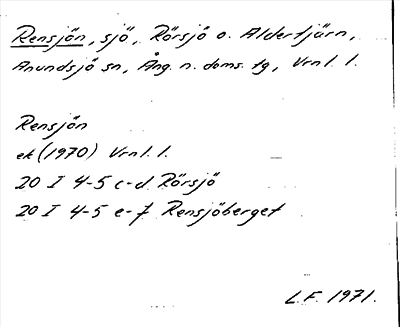 Rensjön, sjö, Rörsjö o. Aldertjärn,
Anundsjö sn, Ång. n. doms. tg, Vrnl. l.
Rensjön
ek (1970) Vrnl. l.
20 I 4-5 c-d Rörsjö
20 I 4-5 e-f Rensjöberget
L.F. 1971.